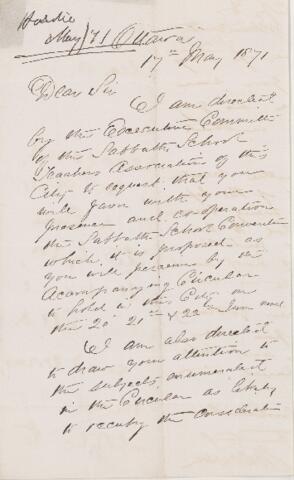 Hardie
May/71 Ottawa
17th May 1871
Dear Sir
I am directed
by the Executive Committee
of the Sabbath School
Teachers Association of this
City to request that you
will favor with your
presence and co-operation
the Sabbath School Convention
which it is proposed as
you will perceive by the
Acompanying Circular
to hold in this City on
the 20th 21st & 22nd June next
I am also directed
to draw your attention to
the subjects enumerated
in the Circular as likely
to occupy the consideration